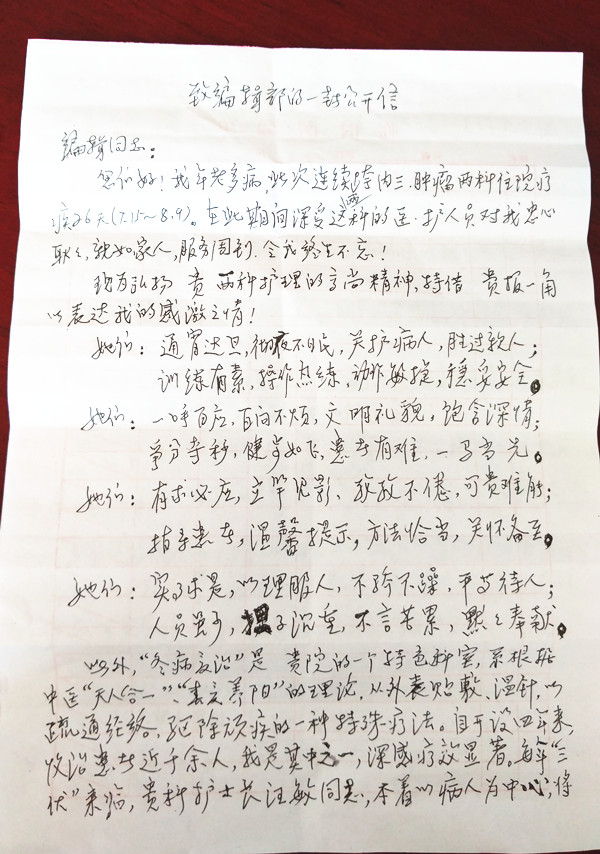 致编辑部的一封公开信
编辑同志：
您们好！我年老多病，此次连续持内三、肿瘤两科住院疗
疾26天(7.15～8.9)。在此期间深受这两科的医、护人员对我忠心
耿々，就如家人，服务周到，令我终生不忘！
现为弘扬 贵 两科护理的高尚精神，特借 贵报一角
以表达我的感激之情！
她们：通宵达旦，彻夜不眠，关护病人，胜过亲人；
训练有素，操作熟练，动作敏捷，稳妥安全。
她们：一呼百应，百问不烦，文明礼貌，饱含深情；
争分夺秒，健步如飞，患者有难，一马当先。
她们：有求必应，立竿见影、孜孜不倦，可贵难能；
指导患者，温馨提示，方法恰当，关怀备至。
她们：实事求是，以理服人，不骄不躁，平等待人；
人员虽少，担子沉重，不言苦累，默々奉献。
此外，“冬病夏治”是 贵院的一个特色科室，系根据
中医“天人合一”、“春夏养阳”的理论，从外表贴敷、温针，以
疏通经络，驱除顽疾的一种特殊疗法。自开设四年来，
收治患者近千余人，我是其中之一，深感疗效显著。每年“三
伏”来临，贵科护士长汪敏同志，本着以病人为中心，将